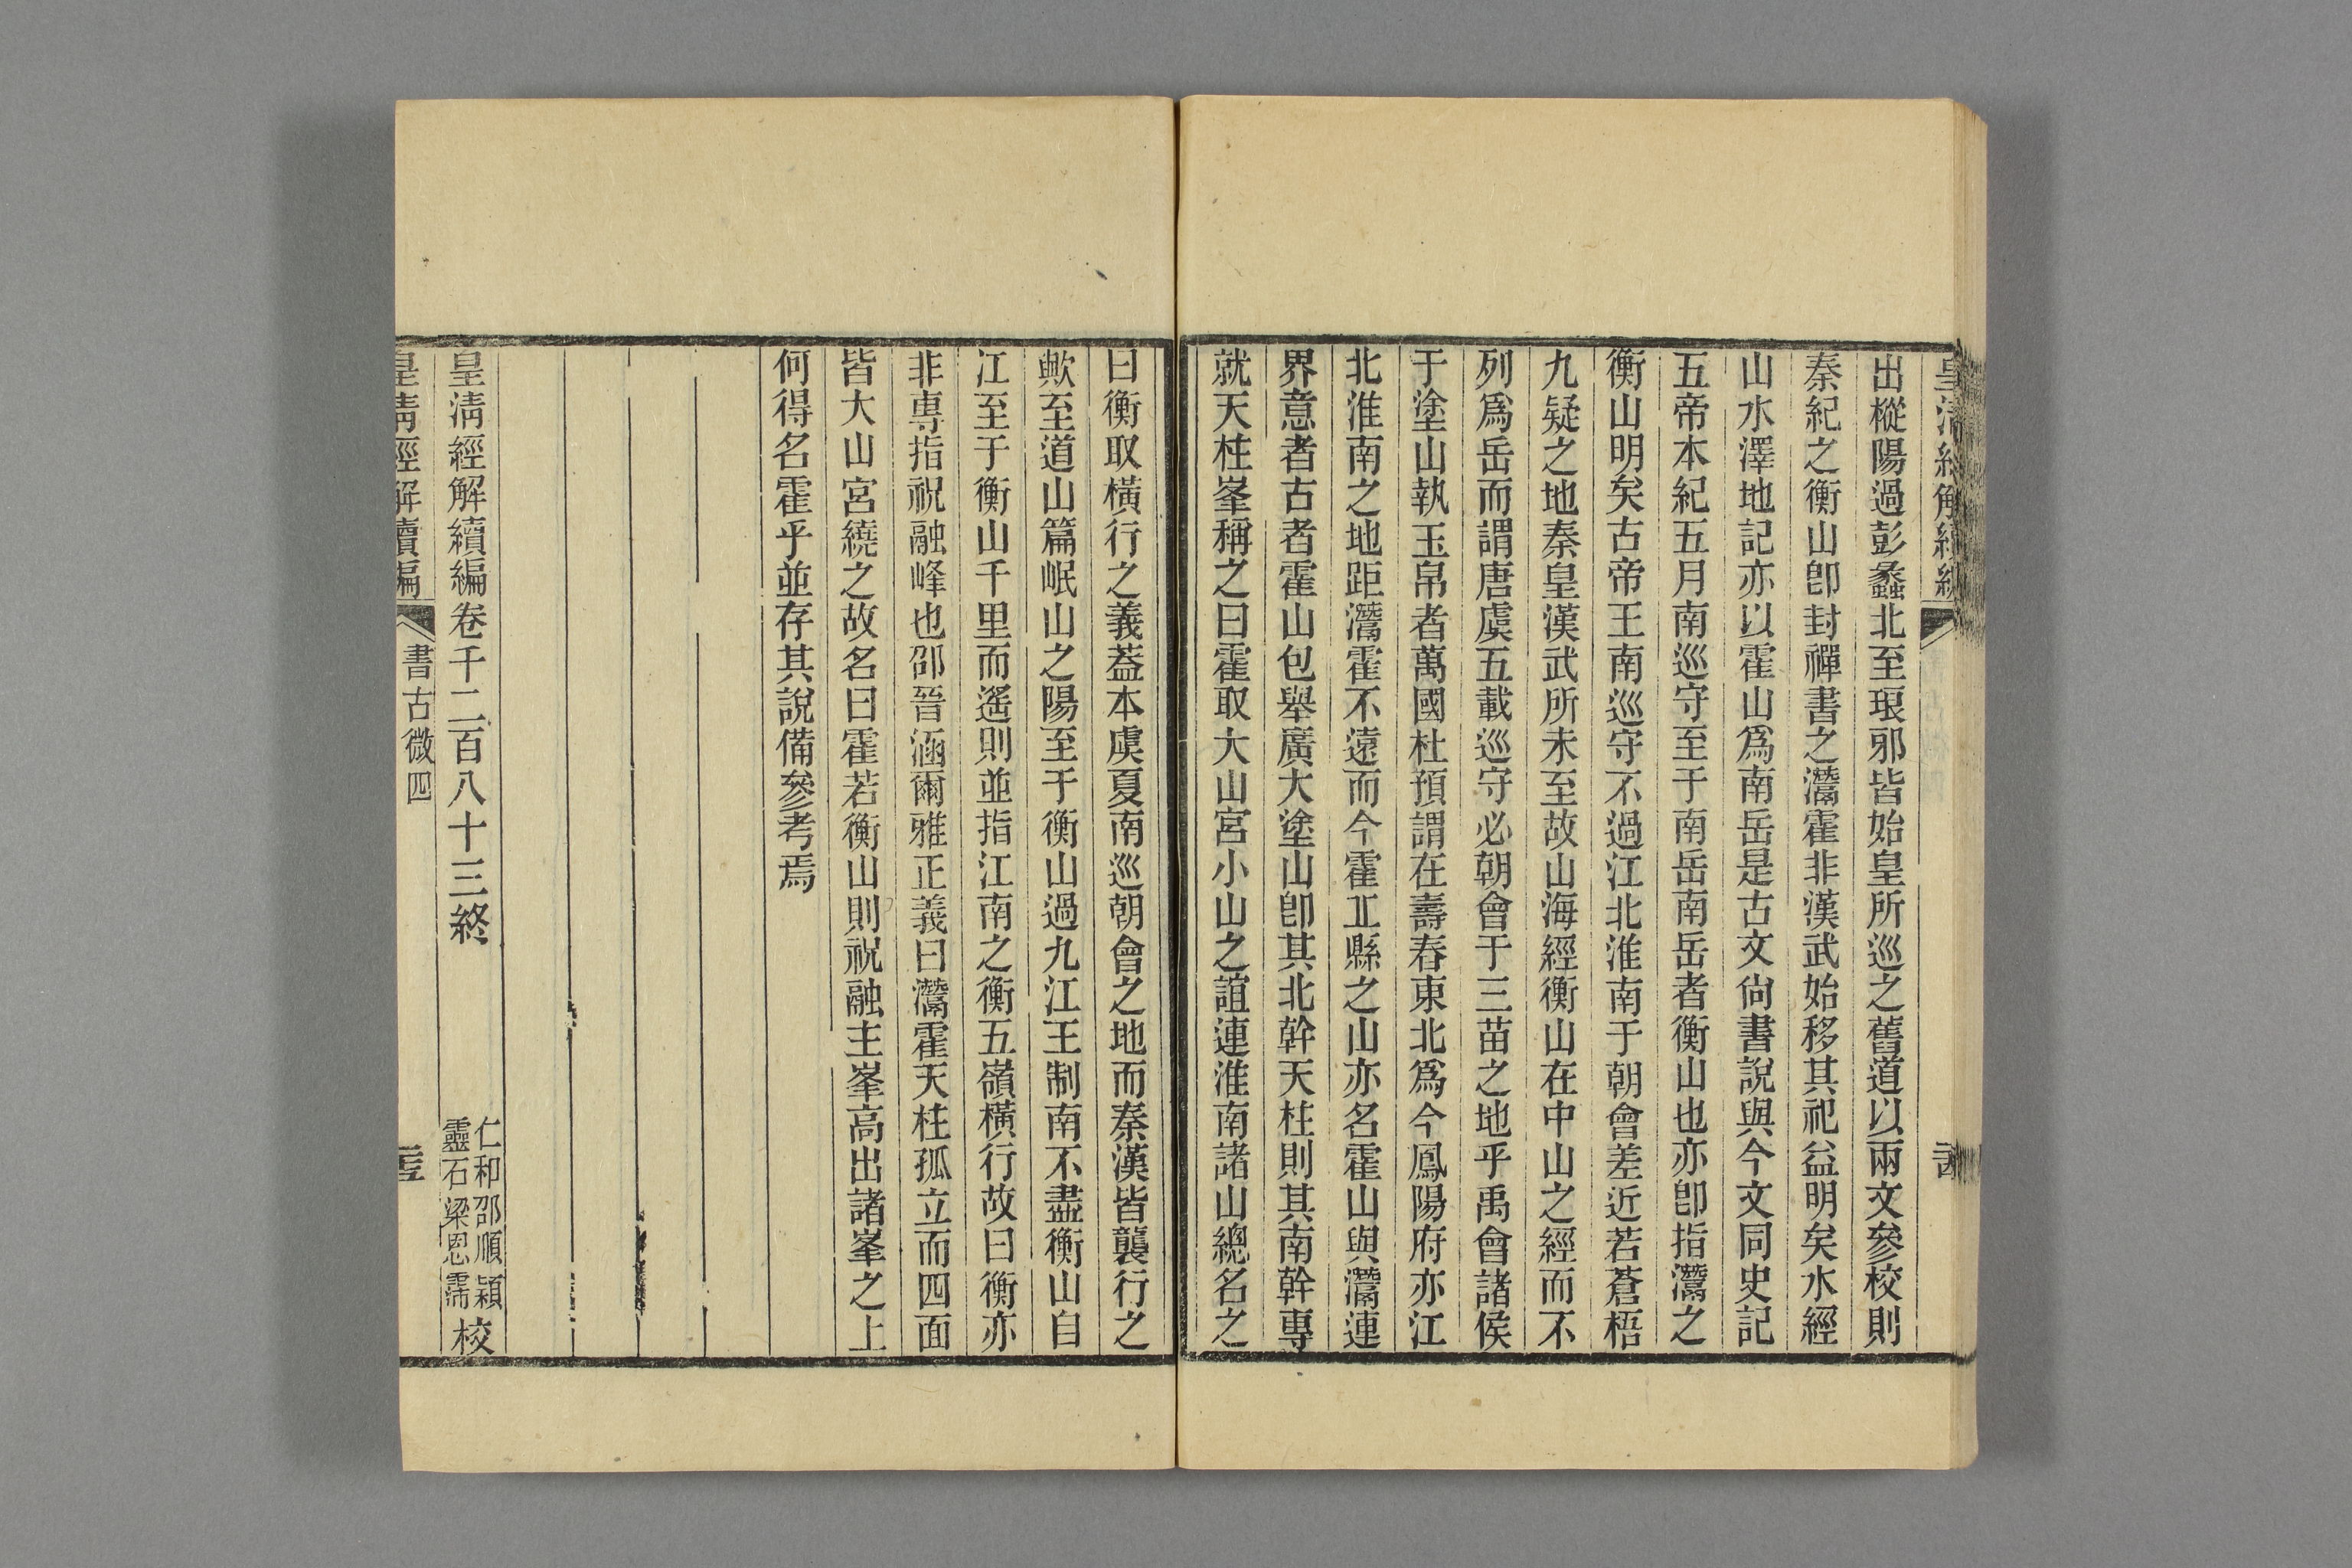 出樅陽過彭蠡北至琅邪皆始皇所巡之舊道以兩文參校則
秦紀之衡山卽封禪書之灊霍非漢武始移其祀益明矣水經
山水澤地記亦以霍山爲南岳是古文尙書說與今文同史記
五帝本紀五月南巡守至于南岳南岳者衡山也亦卽指灊之
衡山明矣古帝王南巡守不過江北淮南于朝會差近若蒼梧
九疑之地秦皇漢武所未至故山海經衡山在中山之經而不
列爲岳而謂唐虞五載巡守必朝會于三苗之地乎禹會諸侯
于塗山執玉帛者萬國杜預謂在壽春東北爲今鳳陽府亦江
北淮南之地距灊霍不遠而今霍㐀縣之山亦名霍山與灊連
界意者古者霍山包舉廣大塗山卽其北幹天柱則其南幹專
就天柱峯稱之曰霍取大山宮小山之誼連淮南諸山總名之
曰衡取橫行之義葢本虞夏南巡朝會之地而秦漢皆襲行之
歟至道山篇岷山之陽至于衡山過九江王制南不盡衡山自
江至于衡山千里而遙則並指江南之衡五嶺橫行故曰衡亦
非專指祝融峰也邵晉涵爾雅正義曰灊霍天柱孤立而四面
皆大山宮繞之故名曰霍若衡山則祝融主峯高出諸峯之上
何得名霍乎並存其說備參考焉
皇淸經解續編卷千二百八十三終
仁和邵順穎
靈石梁恩霈校
皇淸經解續編 書古微四